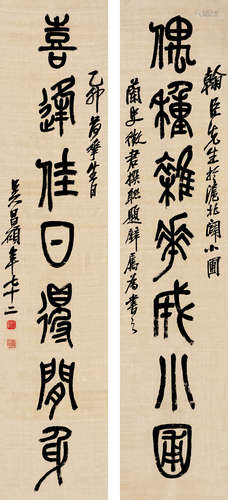 翰臣先生於滬北闢小圃
偶種雜花成小圃
蘭史徵君撰聯題辭屬為書之
乙卯百華生日
喜逢佳日得閒身
吳昌碩年七十二